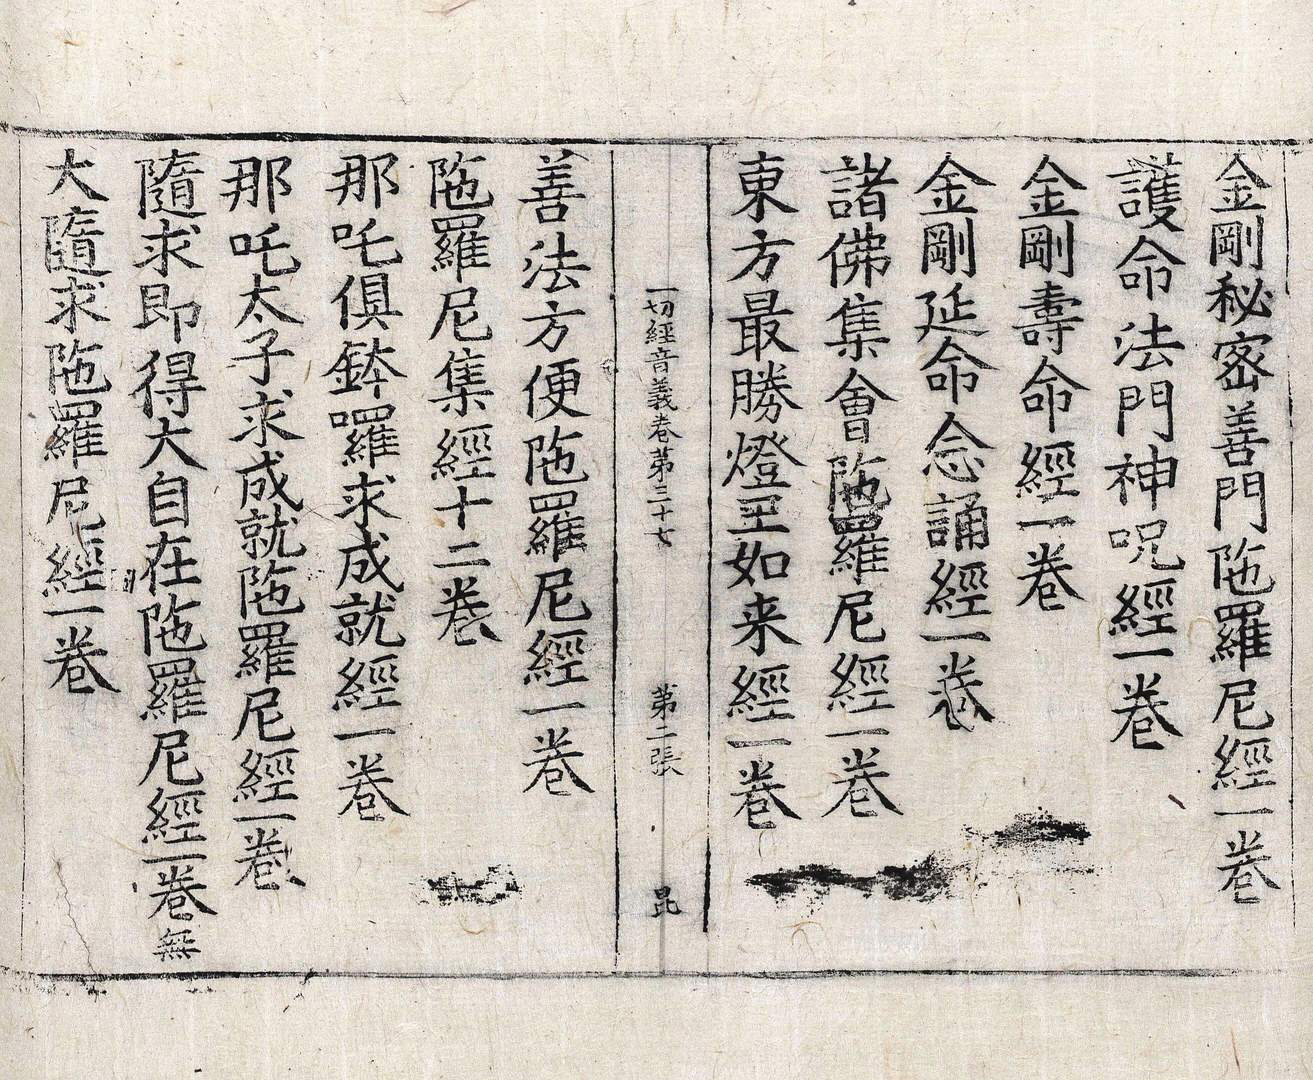 金剛秘密善門陁羅尼經一卷
護命法門神呪經一卷
金剛壽命經一卷
金剛延命念誦經一卷
諸佛集會陁羅尼經一卷
東方最勝燈王如来經一卷
一切經音義卷第三十七 第二張 昆
善法方便陁羅尼經一卷
陁羅尼集經十二卷
那吒俱鉢囉求成就經一卷
那吒太子求成就陁羅尼經一卷
隨求即得大自在陁羅尼經一卷無
大隨求陁羅尼經一卷